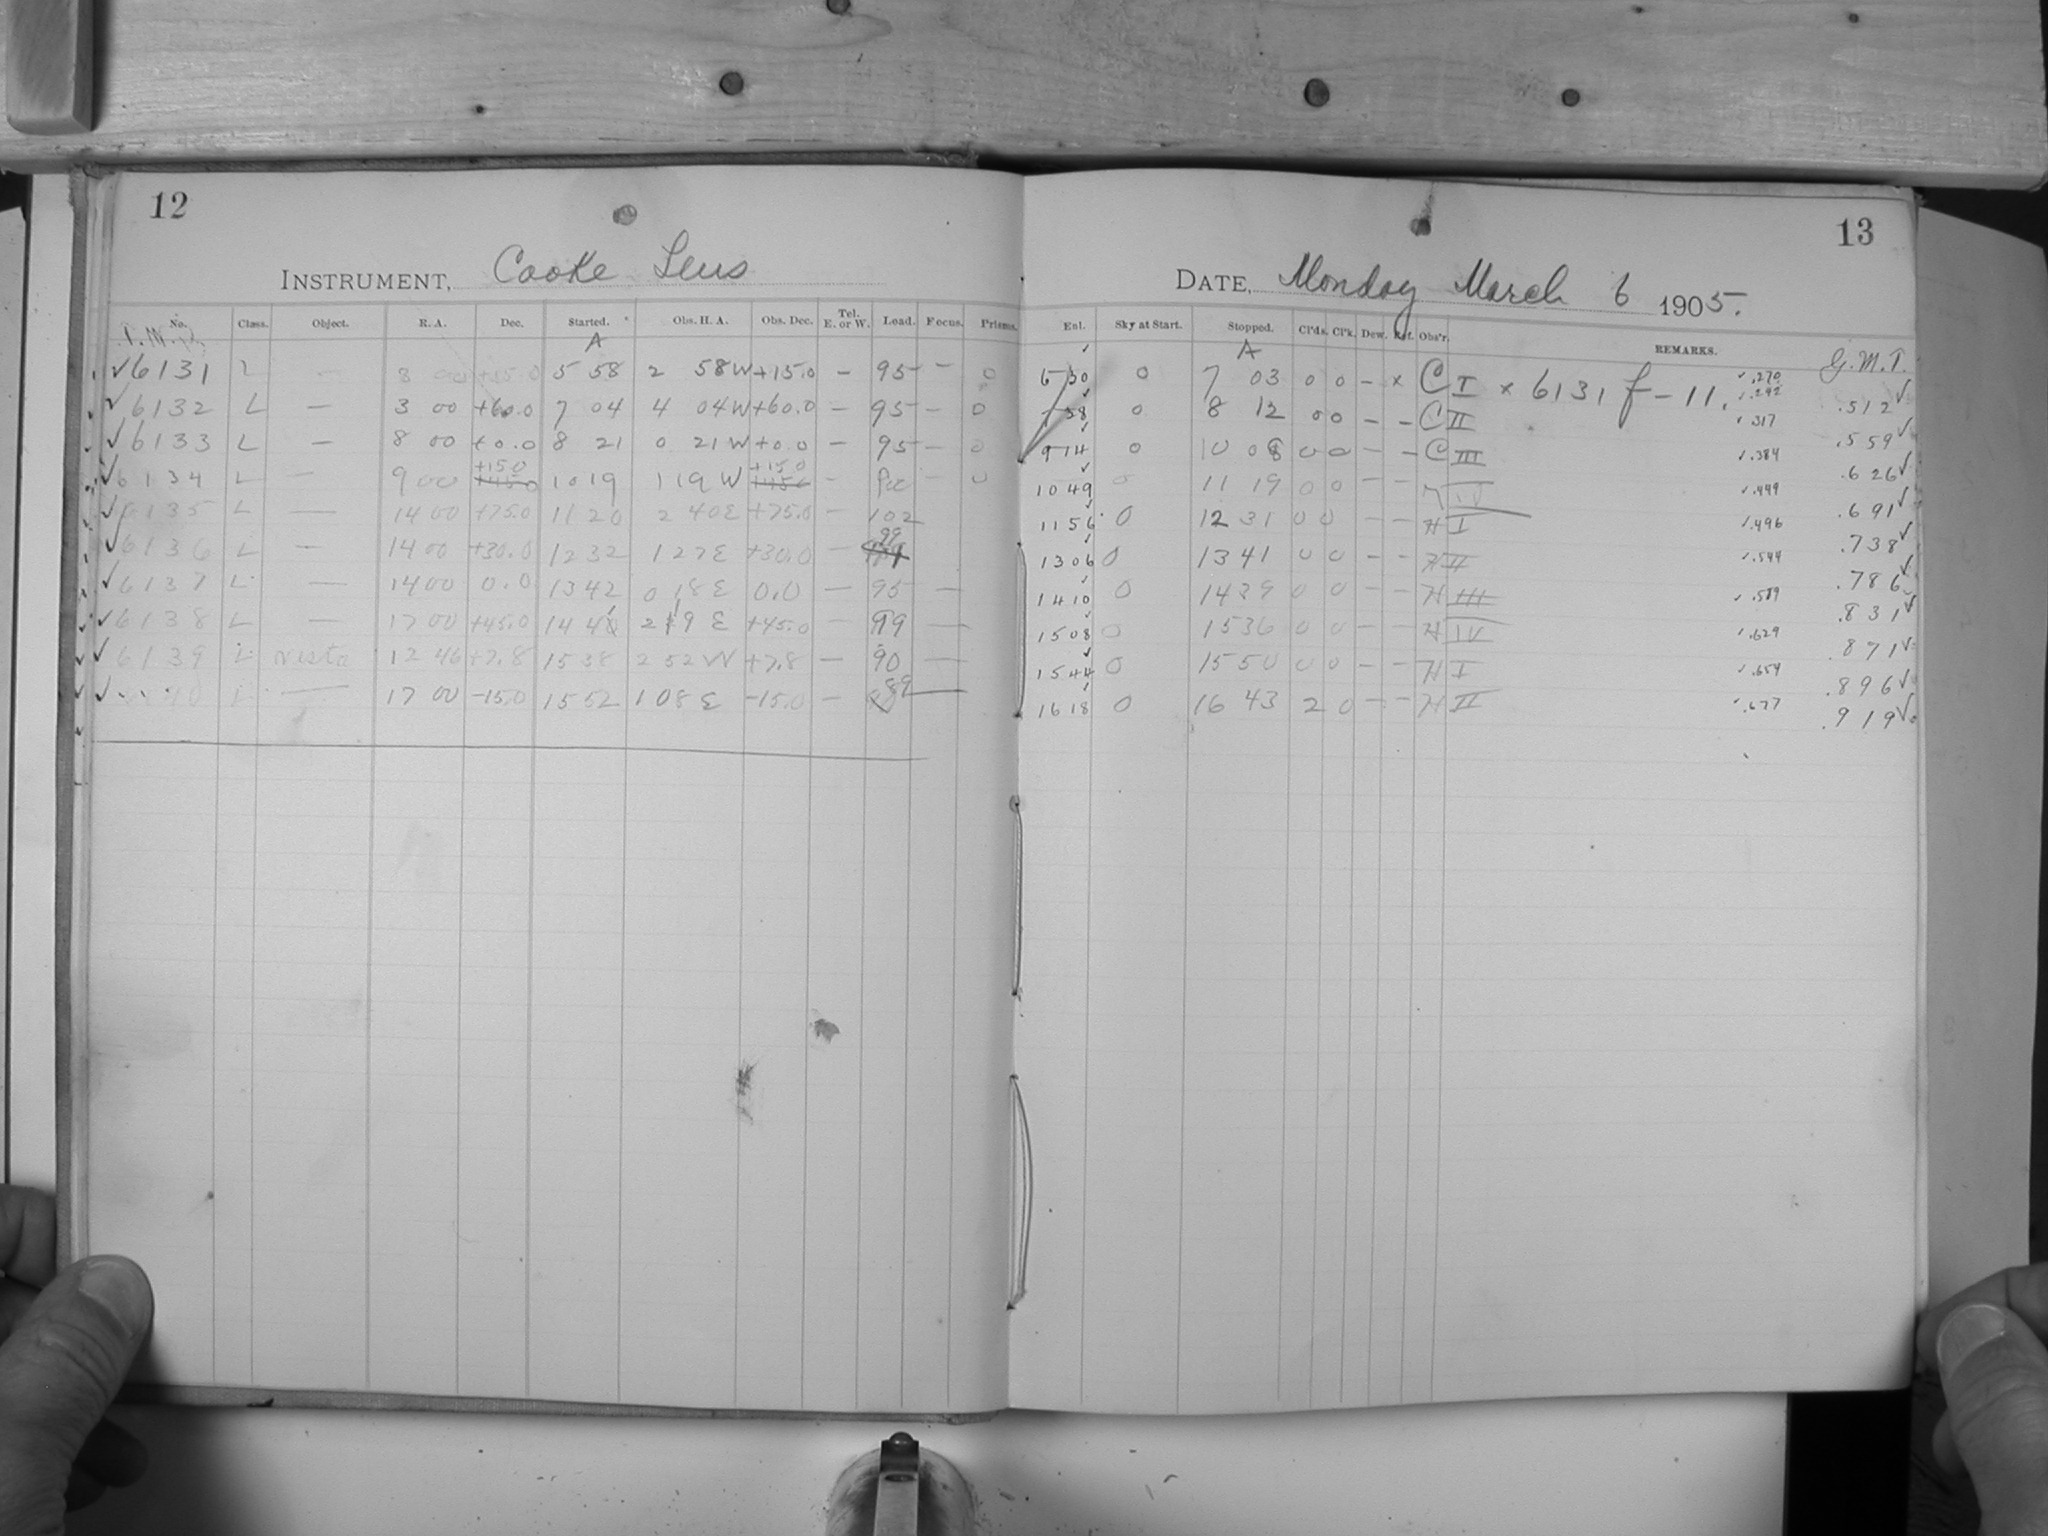 12
INSTRUMENT, Cooke Lens
No. Class. Object. R. A. Dec. Started. Obs. H. A. Obs. Dec. Tel. E. or W. Load. Focus. Prisms.
A
✓6131 L — 3 00 +15.0 5 58 2 58W +15.0 — 95 — 0
✓6132 L — 3 00 +60.0 7 04 4 04W +60.0 — 95 — 0
✓6133 L — 8 00 +0.0 8 21 0 21W +0.0 — 95 — 0
✓6134 L — 9 00 +15.0 10 19 1 19 W +15.0 — — 0
✓6135 L — 14 00 +75.0 11 20 2 40E +75.0 — 102
✓6136 L — 14 00 +30.0 12 32 1 27E +30.0 — 99
✓6137 L — 14 00 0.0 13 42 0 18E 0.0 — 95 —
✓6138 L — 17 00 +45.0 14 41 2 19 E +45.0 — 99 —
✓6139 L Vesta 12 46 +7.8 15 38 2 52W +7.8 — 90 —
✓ 40 L — 17 00 -15.0 15 52 1 08E -15.0 — 89 —
13
DATE, Monday March 6 1905.
Enl. Sky at Start. Stopped. Cl'ds. Cl'k. Dew. Ref. Obs'r. REMARKS.
A G.M.T.
6 30 0 7 03 0 0 — × C I × 6131 f-11. ✓.270 ✓.242 .512✓
7 38 0 8 12 0 0 — — C II ✓.317 .559✓
9 14 0 10 08 0 0 — — C III ✓.384 .626✓
10 49 0 11 19 0 0 — — H IV ✓.449 .691✓
11 56 0 12 31 0 0 — — H I ✓.496 .738✓
13 06 0 13 41 0 0 — — H II ✓.544 .786✓
14 10 0 14 39 0 0 — — H III ✓.589 .831✓
15 08 0 15 36 0 0 — — H IV ✓.629 .871✓
15 44 0 15 50 0 0 — — H I ✓.654 .896✓
16 18 0 16 43 2 0 — — H II ✓.677 .919✓